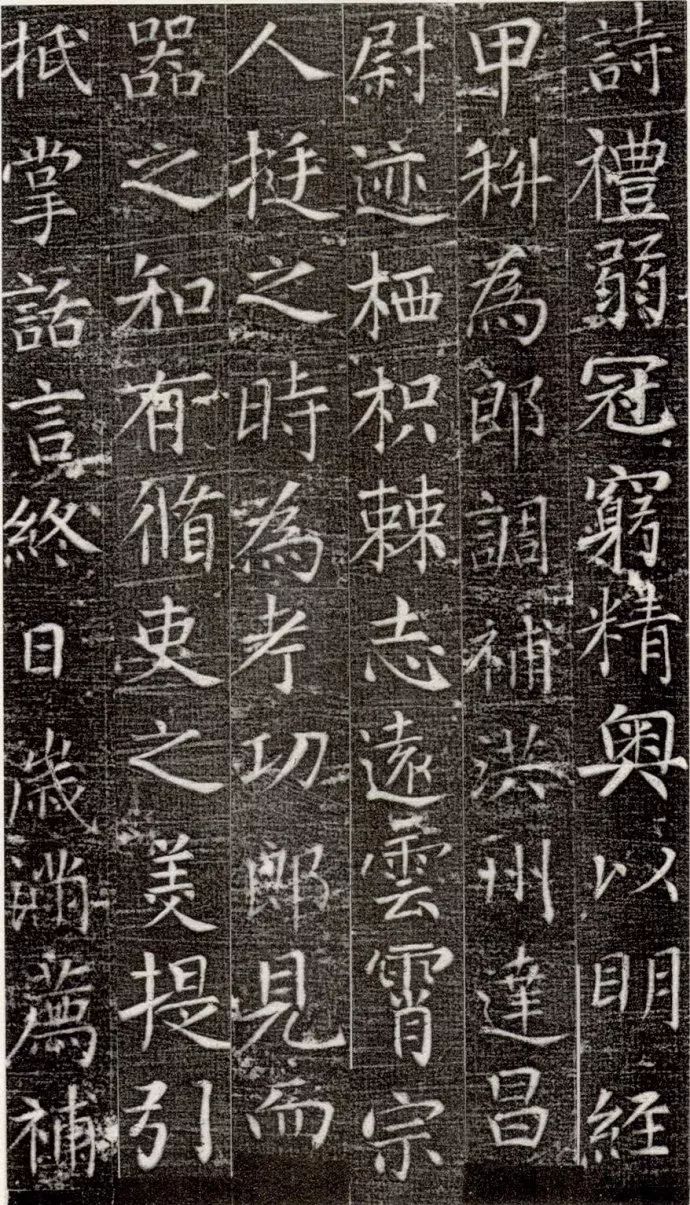 詩禮弱冠窮精奧以明経
甲科為郎調補洪州達昌
尉迹栖枳棘志遠雲霄宗
人挺之時為考功郎見而
器之知有脩吏之美提引
抵掌話言終日歳滿薦補